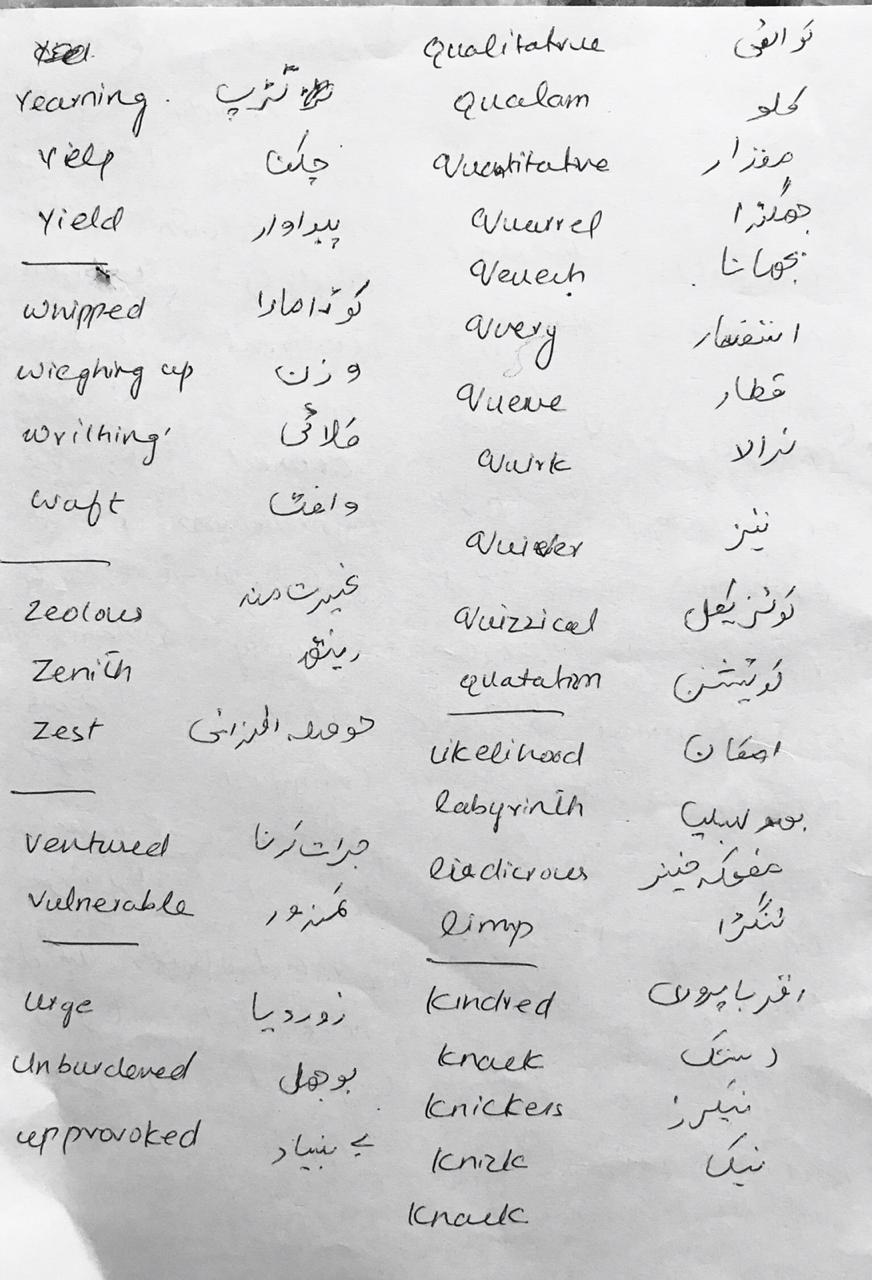 Yearning تڑپ
Yielp چکن
Yield پیداوار
Whipped کوڑا مارا
Wieghing up وزن
Writhing
Waft وافٹ
Zeolous غیرت منہ
Zenith
Zest حوصلہ افزائی
Ventured جرات کرنا
Vulnerable کمزور
Urge زور دیا
Unburdened بوجھل
upprovoked بے بنیاد
Qualitative
Qualam
Quantitative
Quarrel جھگڑا
Queuech بجھانا
Query استفسار
Queue قطار
Quirk نرالا
Quizzical کوئزیکل
Quatation کوٹیشن
Likelihood امکان
Labyrinth
limp لنگڑا
Kindred اقربا پروری
Knack دستک
Knickers نیکرز
Knizk نیک
Knack